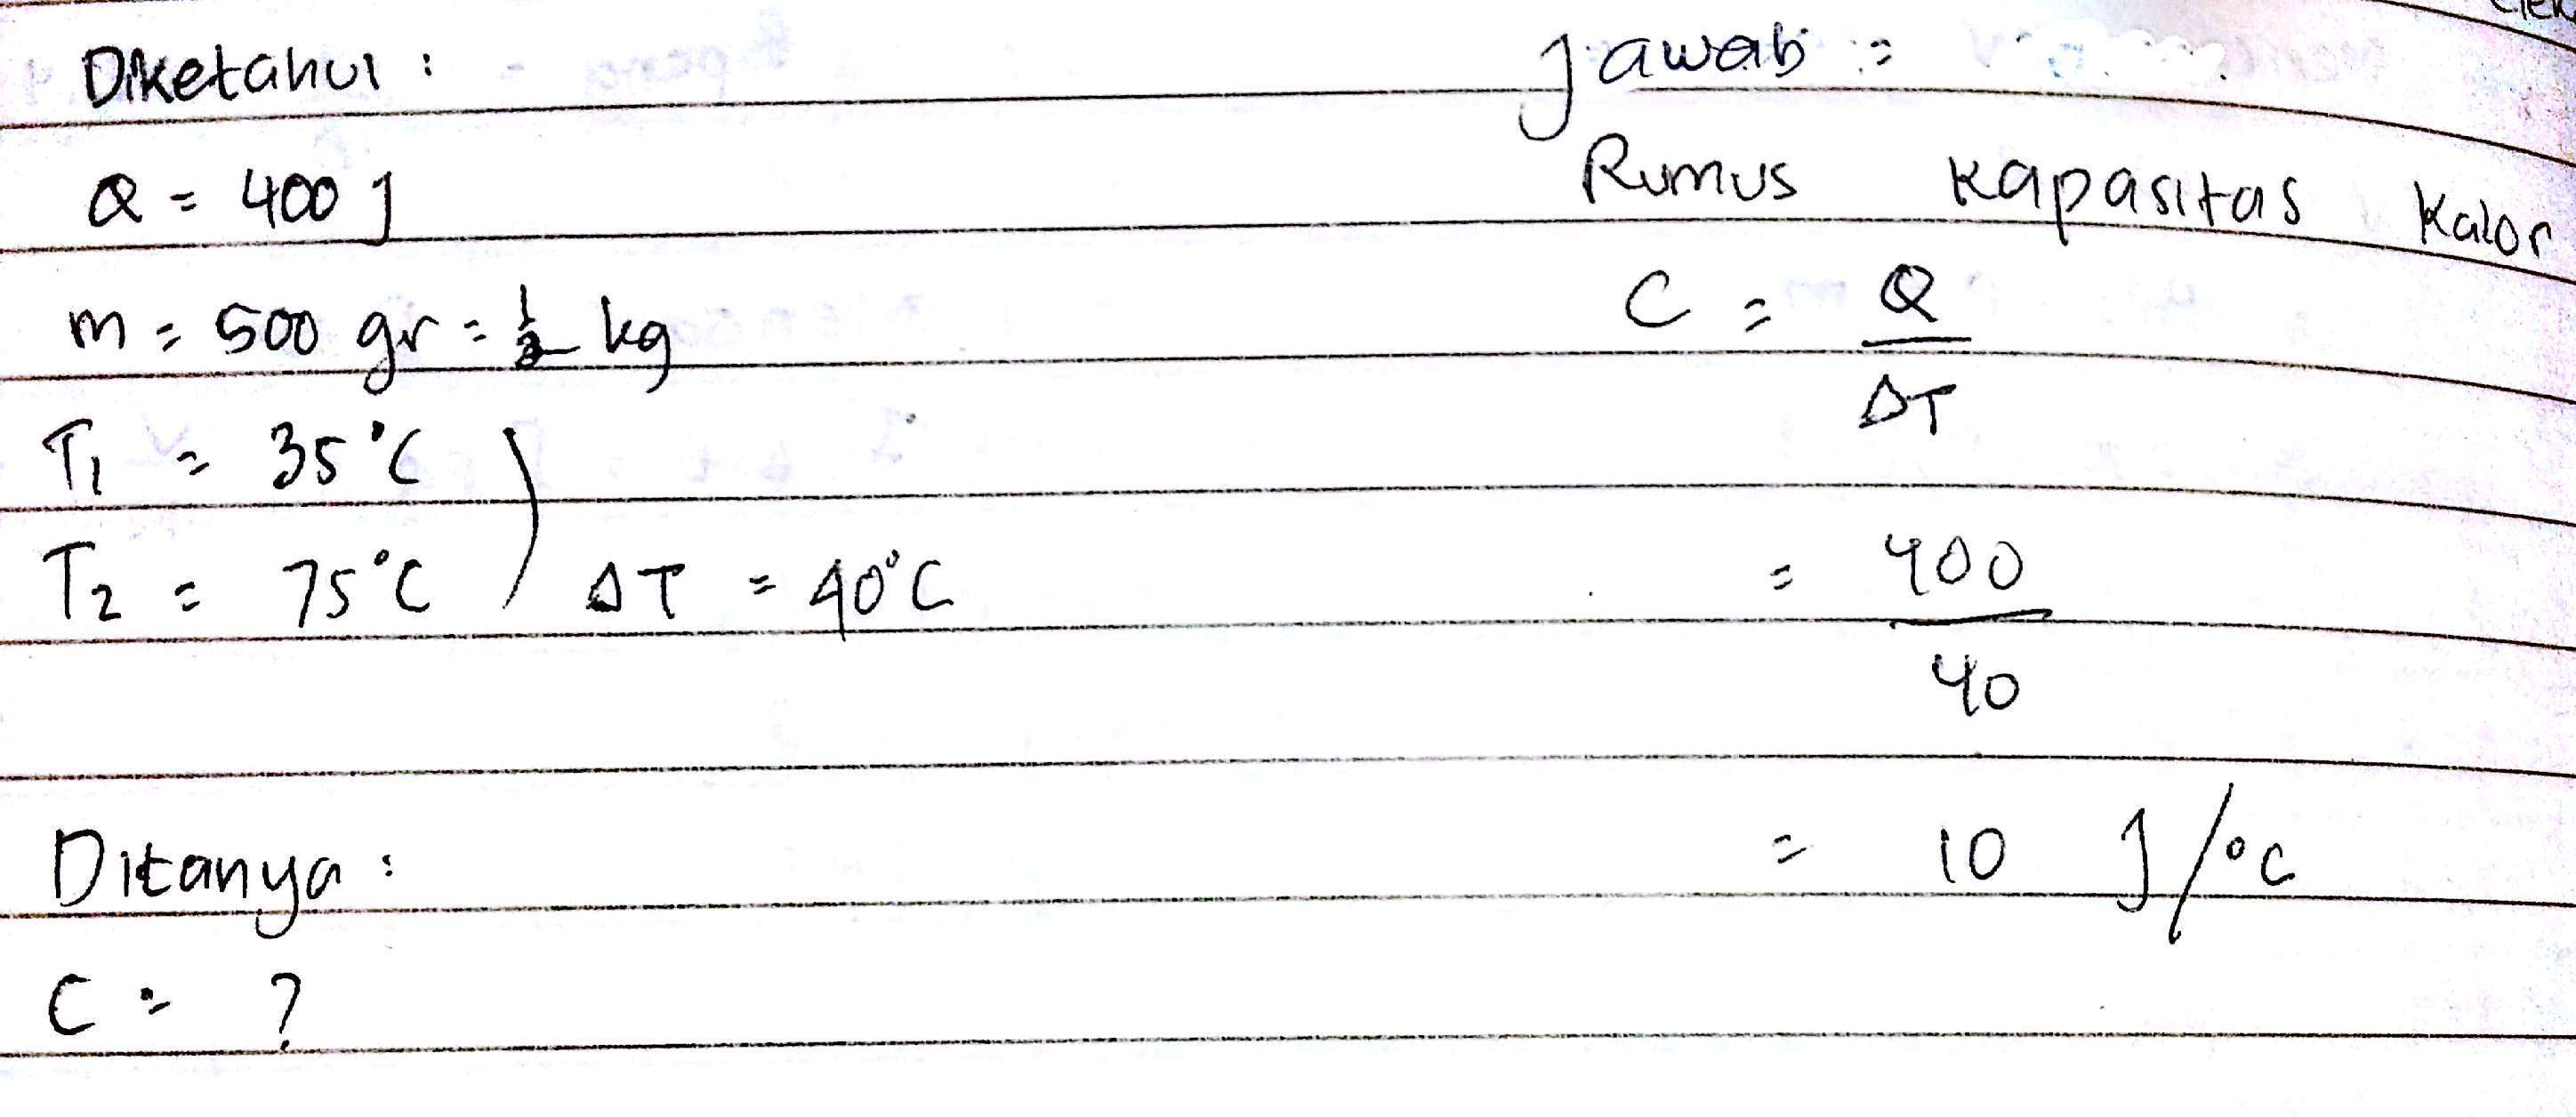 Diketahui :
Q = 400 J
m = 500 gr = 1/2 kg
T1 = 35°C
T2 = 75°C ) ΔT = 40°C
Ditanya :
C = ?
Jawab =
Rumus Kapasitas Kalor
C = Q
ΔT
= 400
40
= 10 J/°C